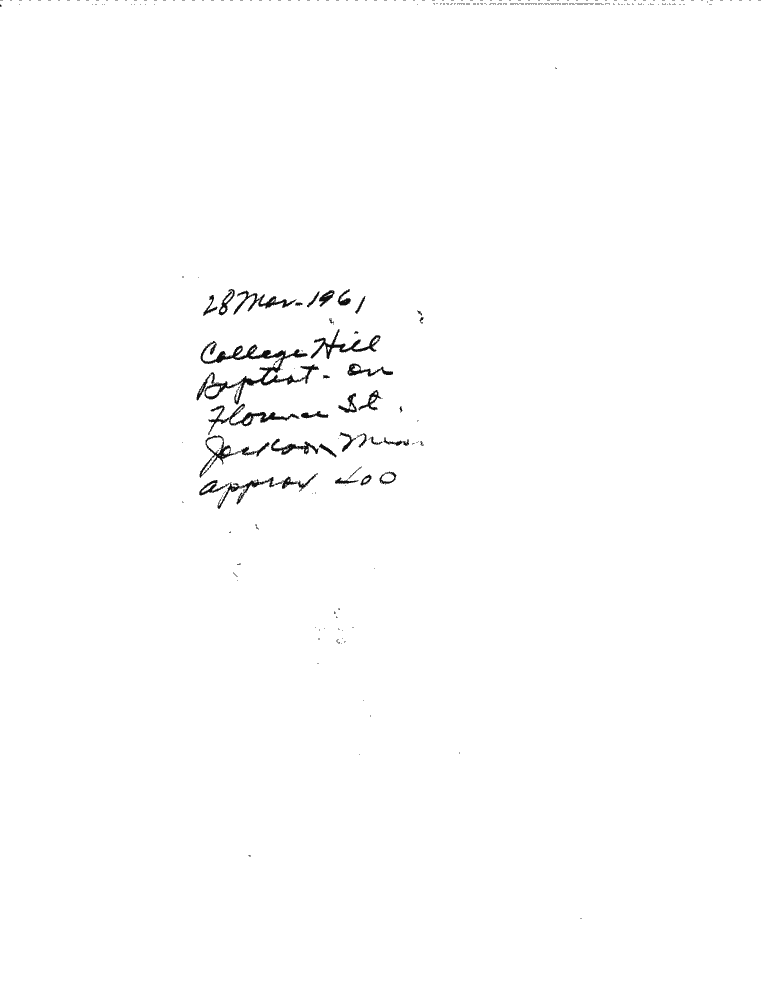 28 Mar-1961
College Hill
Baptist - on
Florence St.
Jackson Miss
approx 400